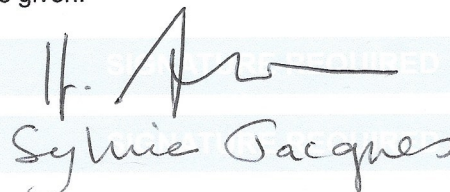 s given.
SIGNATURE REQUIRED
H.
SIGNATURE REQUIRED
Sylvie Jacques